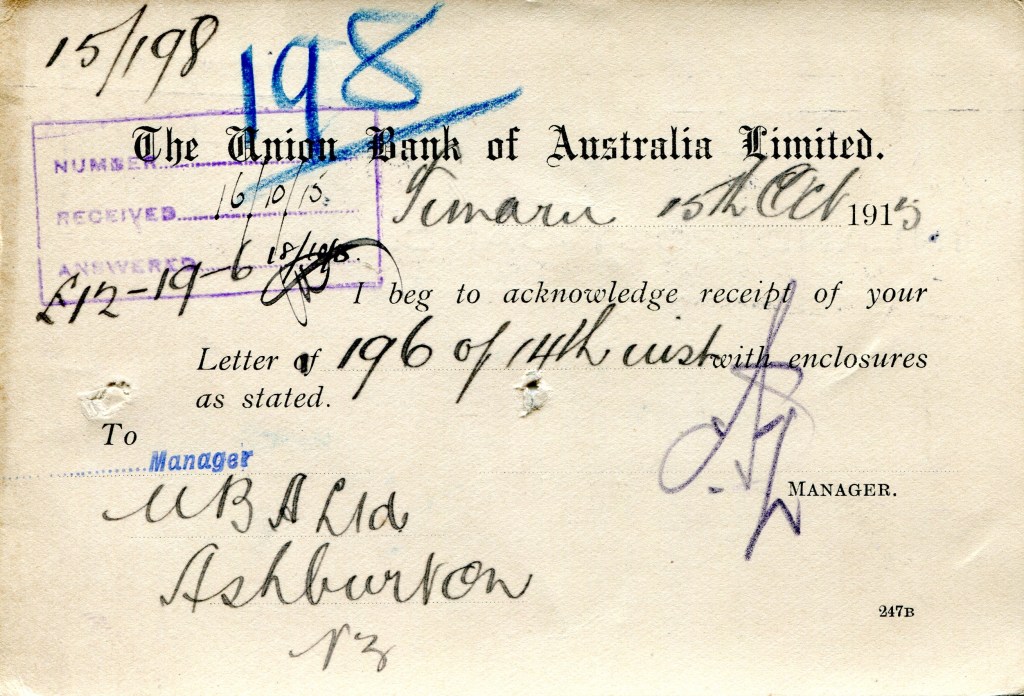 15/198
198
The Union Bank of Australia Limited.
NUMBER
RECEIVED 16/10/15.
Timaru 15th Oct 1915
ANSWERED 18/10/15.
£12-19-6
I beg to acknowledge receipt of your
Letter of 196 of 14th inst with enclosures
as stated.
To
Manager
MANAGER.
U B A Ltd
Ashburton
NZ
247B